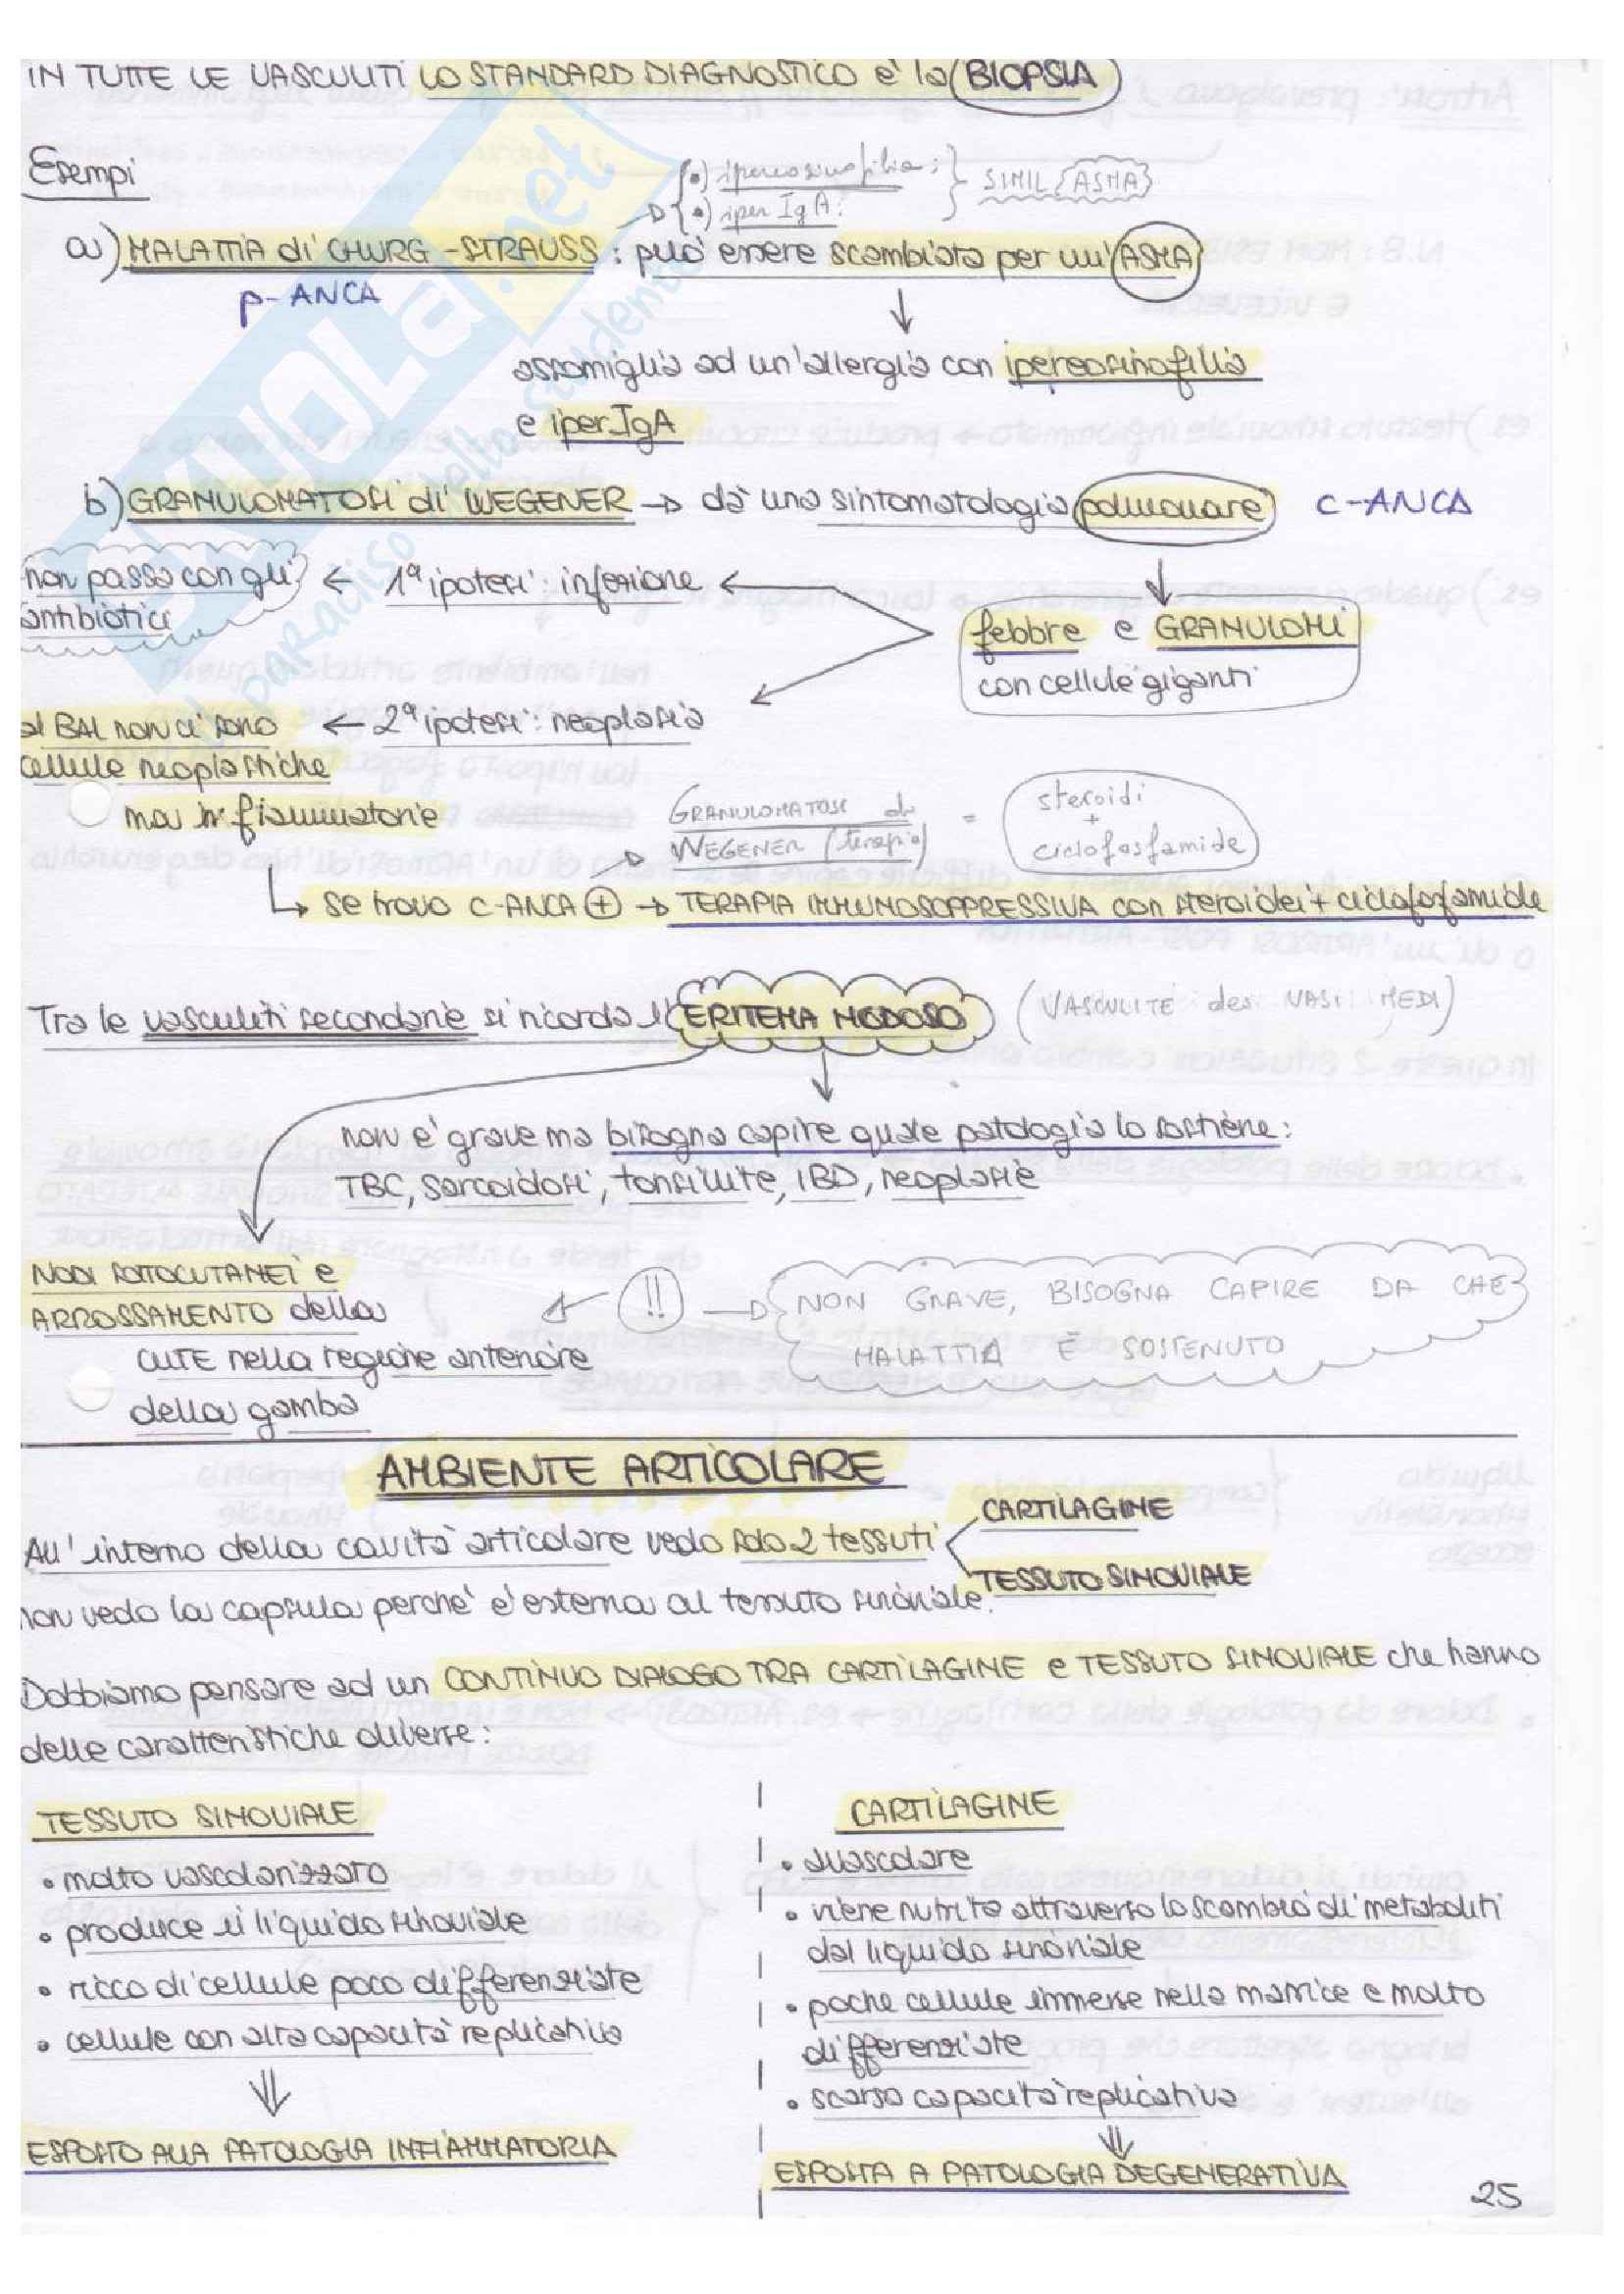 IN TUTTE LE VASCULITI LO STANDARD DIAGNOSTICO è la BIOPSIA
Esempi
•) ipereosinofilia:
•) iper IgA:
SIMIL ASMA
a) MALATTIA di CHURG-STRAUSS: può essere scambiata per un' ASMA
p-ANCA
assomiglia ad un'allergia con ipereosinofilia
e iper IgA
b) GRANULOMATOSI di WEGENER → dà una sintomatologia polmonare c-ANCA
non passa con gli ← 1ª ipotesi: infezione
antibiotici
febbre e GRANULOMI
con cellule giganti
al BAL non ci sono ← 2ª ipotesi: neoplasia
cellule neoplastiche
ma infiammatorie
GRANULOMATOSI di
WEGENER (terapia) =
steroidi
+
ciclofosfamide
↳ se trovo c-ANCA ⊕ → TERAPIA IMMUNOSOPPRESSIVA con steroidei + ciclofosfamide
Tra le vasculiti secondarie si ricorda l'ERITEMA NODOSO (VASCULITE dei VASI MEDI)
non è grave ma bisogna capire quale patologia lo sostiene:
TBC, Sarcoidosi, tonsillite, IBD, neoplasie
NODI SOTTOCUTANEI e
ARROSSAMENTO della
CUTE nella regione anteriore
della gamba
!!
NON GRAVE, BISOGNA CAPIRE DA CHE
MALATTIA È SOSTENUTO
AMBIENTE ARTICOLARE
All'interno della cavità articolare vedo solo 2 tessuti
CARTILAGINE
TESSUTO SINOVIALE
non vedo la capsula perché è esterna al tessuto sinoviale.
Dobbiamo pensare ad un CONTINUO DIALOGO TRA CARTILAGINE e TESSUTO SINOVIALE che hanno
delle caratteristiche diverse:
TESSUTO SINOVIALE
• molto vascolarizzato
• produce il liquido sinoviale
• ricco di cellule poco differenziate
• cellule con alta capacità replicativa
ESPOSTO ALLA PATOLOGIA INFIAMMATORIA
CARTILAGINE
• avascolare
• viene nutrito attraverso lo scambio di metaboliti
dal liquido sinoviale
• poche cellule immerse nella matrice e molto
differenziate
• scarsa capacità replicativa
ESPOSTA A PATOLOGIA DEGENERATIVA
25
SKUOLA.net
il paradiso dello studente